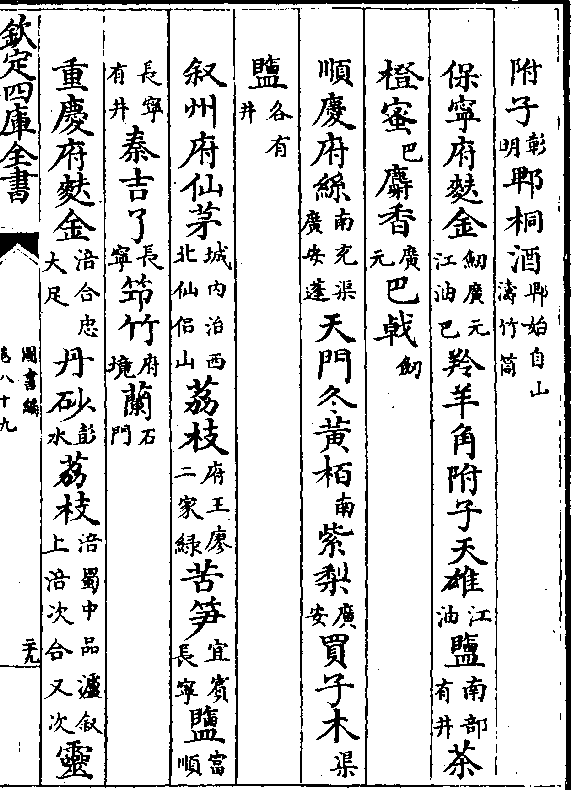 附子彰明郫桐酒郫始自山濤竹筒
保寧府麩金劒廣元江油巴羚羊角附子天雄江油鹽南部有井茶
橙蜜巴麝香廣元巴戟劒
順慶府絲南充渠廣安蓬天門冬黃栢南紫梨廣安買子木渠
鹽各有井
叙州府仙茅城內治西北仙侣山荔枝府王廖二家緑苦笋宜賓長寧鹽富順
長寧有井秦吉了長寧筇竹府境蘭石門
重慶府麩金涪合忠大足丹砂彭水荔枝涪蜀中品瀘叙上涪次合又次靈
欽定四庫全書
圖書編
卷八十九